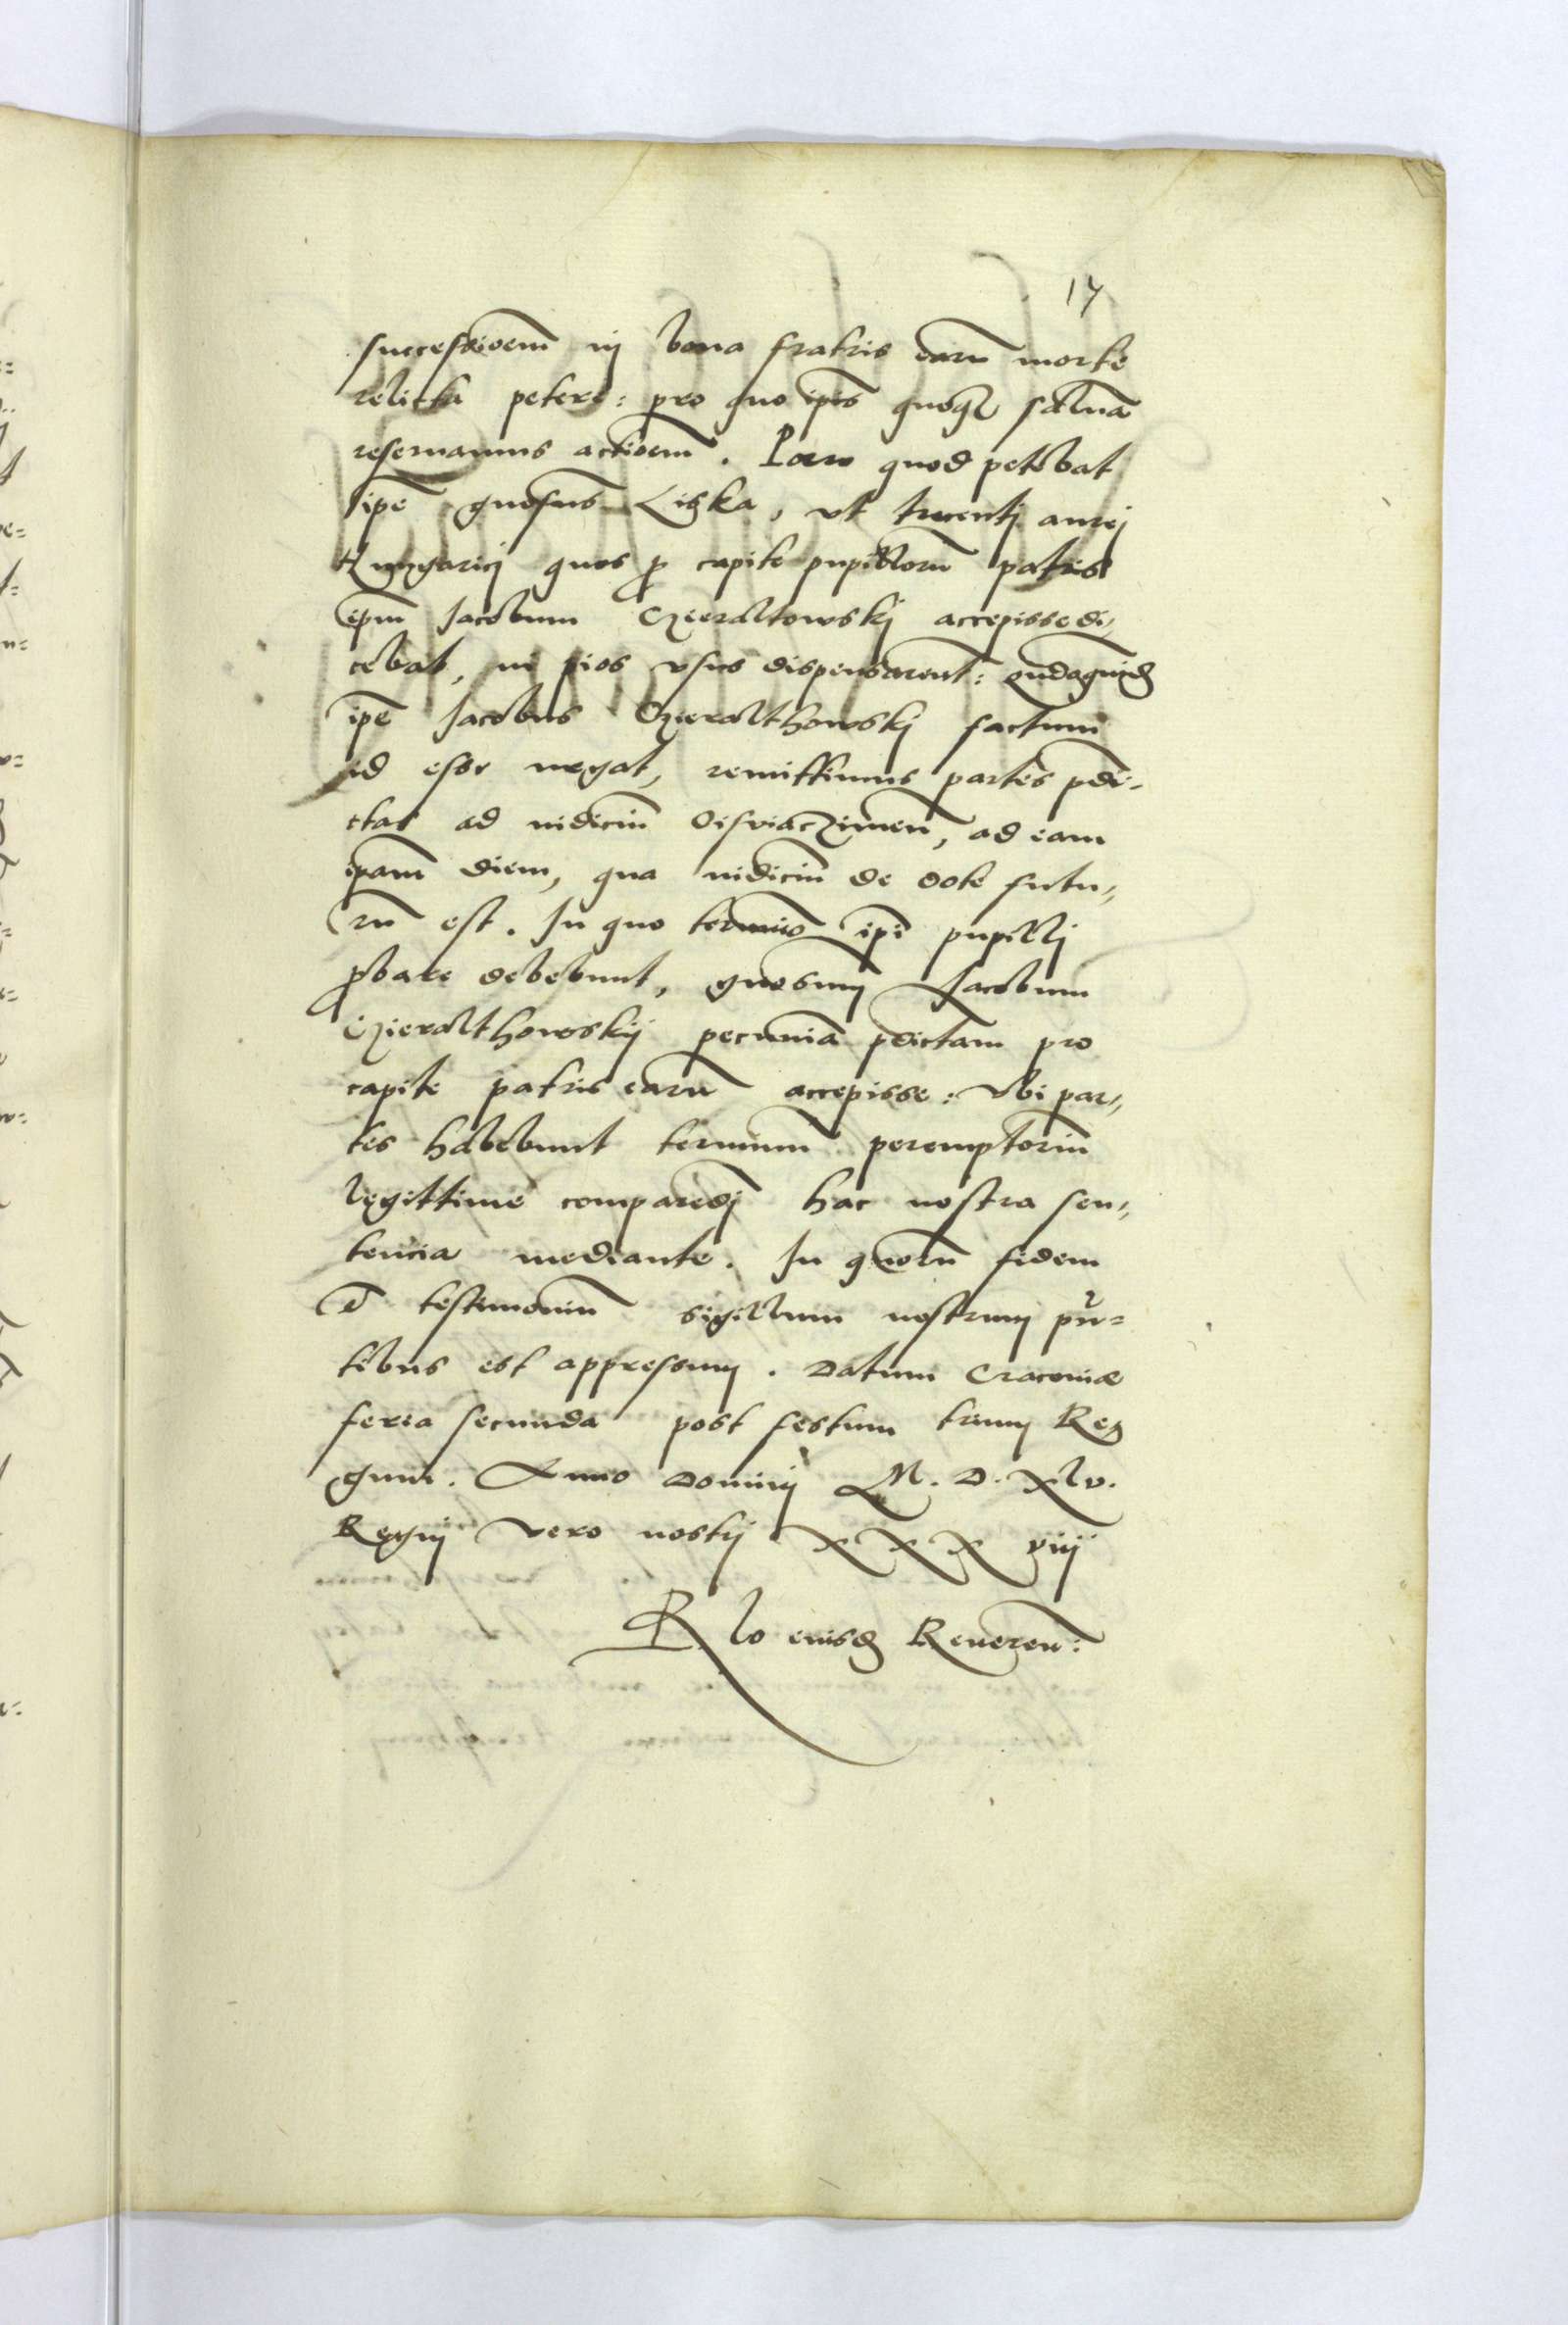 17
successioem in bona fratris earu morte
relicta petere: pro quo ipis quoq saluā
reseruamus actioem. Porro quod petebat
ipe gnosus Liska, vt trecentj aurej
Hungaricj quos p capite pupillorū patris
ipm Jacobum Czieraltowskj accepisse di,,
cebat, in pios vsus dispensarent: qndaquidē
ipe Jacobus Czieralthowskj factum
id esse negat, remittimus partes pdi-
ctas ad iudiciū Osviaczimeñ, ad eam
ipam diem, qua iudiciū de dote futu,,
rū est. In quo termino ipi pupillj
pbare debebunt, gnosum Jacobum
Czieralthowskij pecuniā pdictam pro
capite patris earū accepisse: Vbi par,,
tes habebunt terminum peremptoriū
legittime comparēdj hac nostra sen,,
tencia mediante. In quorū fidem
et testimoniū sigillum nostrum pñ=
tibus est appressum. Datum Cracoviæ
feria secunda post festum trium Re
gum. Anno Dominj M. D. xlv.
Regnj vero nostrj XXX viij
Rlo eiusd Reuereñ: